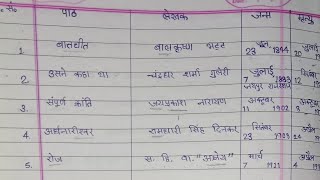 सं० पाठ लेखक जन्म
1 बातचीत बाल कृष्ण भट्ट 23 जून, 1844 20
2 उसने कहा था चंद्रधर शर्मा गुलेरी जुलाई 7 1883 12
जयपुर राजस्थान
3 संपूर्ण क्रांति जयप्रकाश नारायण अक्टूबर 11 1902
4. अर्धनारीश्वर रामधारी सिंह दिनकर सितंबर 23 24
5. रोज स. ही. वा. "अज्ञेय" मार्च 7 1921 4